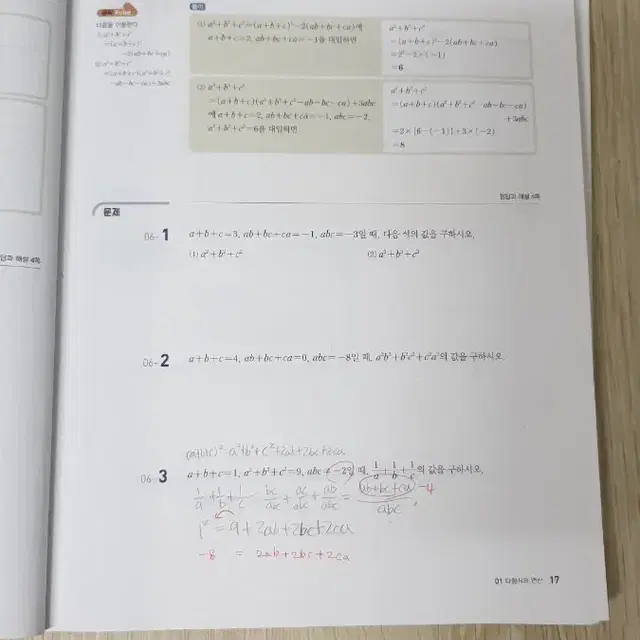 다음을 이용한다.
풀이
(1) a²+b²+c²=(a+b+c)²-2(ab+bc+ca)에
a+b+c=2, ab+bc+ca=-1을 대입하면
a²+b²+c²
=(a+b+c)²-2(ab+bc+ca)
=2²-2×(-1)
=6
(2) a³+b³+c³
=(a+b+c)(a²+b²+c²-ab-bc-ca)+3abc
에 a+b+c=2, ab+bc+ca=-1, abc=-2,
a²+b²+c²=6을 대입하면
a³+b³+c³
=(a+b+c)(a²+b²+c²-ab-bc-ca)
+3abc
=2×{6-(-1)}+3×(-2)
=8
정답과 해설 4쪽
문제
06-1 a+b+c=3, ab+bc+ca=-1, abc=-3일 때, 다음 식의 값을 구하시오.
(1) a²+b²+c² (2) a³+b³+c³
06-2 a+b+c=4, ab+bc+ca=0, abc=-8일 때, a²b²+b²c²+c²a²의 값을 구하시오.
(a+b+c)²=a²+b²+c²+2ab+2bc+2ca
06-3 a+b+c=1, a²+b²+c²=9, abc=-2일 때, 1/a+1/b+1/c의 값을 구하시오.
1/a+1/b+1/c = bc/abc+ac/abc+ab/abc = (ab+bc+ca)/abc -4
1²=9+2ab+2bc+2ca
-8 = 2ab+2bc+2ca
01 다항식의 연산 17